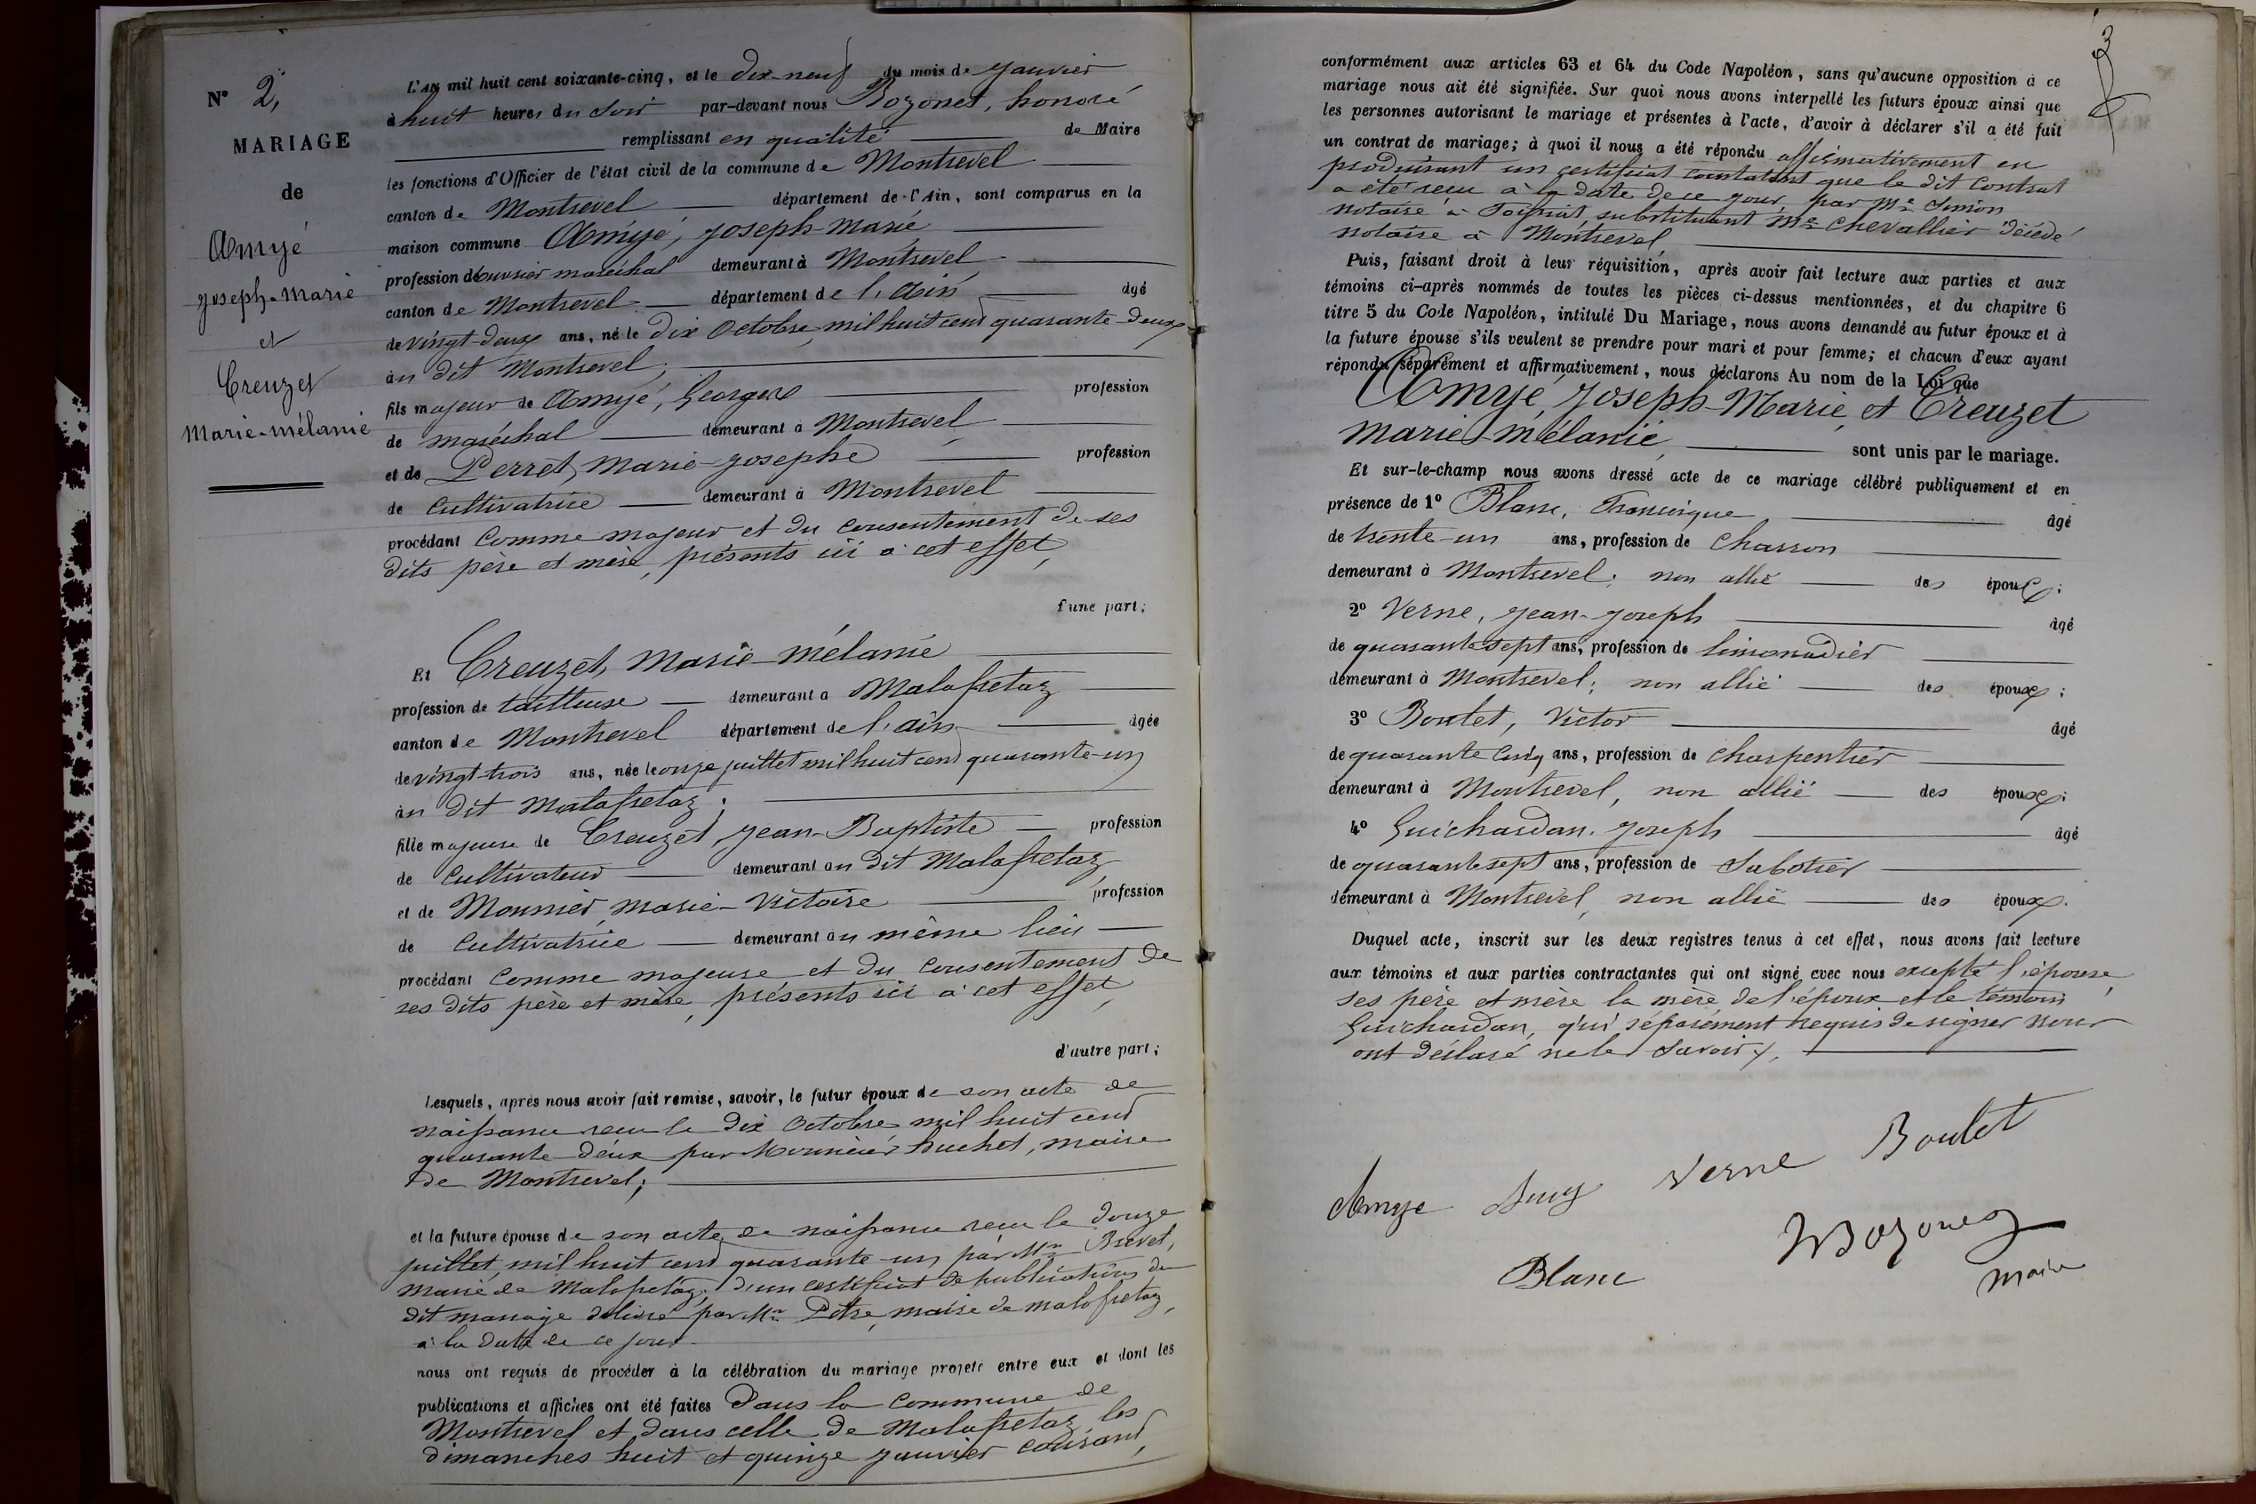 N° 2,
MARIAGE
de
Amyé
Joseph-Marie
et
Creuzet
Marie-mélanie
L'AN mil huit cent soixante-cinq, et le dix-neuf du mois de Janvier
à huit heures du Soir par-devant nous Bozonet, honoré
remplissant en qualité de Maire
les fonctions d'Officier de l'état civil de la commune de Montrevel
canton de Montrevel département de l'Ain, sont comparus en la
maison commune Amyé, Joseph-Marie
profession d'ouvrier maréchal demeurant à Montrevel
canton de Montrevel département de l'Ain âgé
de vingt-deux ans, né le dix Octobre mil huit cent quarante-deux
au dit Montrevel;
fils majeur de Amyé, Georges profession
de maréchal demeurant à Montrevel
et de Perret, Marie-Josephe profession
de Cultivatrice demeurant à Montrevel
procédant Comme majeur et du Consentement de ses
dits père et mère, présents ici à cet effet,
d'une part;
Et Creuzet, Marie-mélanie
profession de tailleuse demeurant à Malafretaz
canton de Montrevel département de l'ain âgée
de vingt-trois ans, née le onze juillet mil huit cent quarante-un
au dit Malafretaz;
fille majeure de Creuzet, Jean-Baptiste profession
de Cultivateur demeurant au dit Malafretaz
et de Mounier, Marie-Victoire profession
de Cultivatrice demeurant au même lieu
procédant Comme majeure et du Consentement de
ses dits père et mère, présents ici à cet effet,
d'autre part;
Lesquels, après nous avoir fait remise, savoir, le futur époux de son acte de
naissance reçu le dix Octobre mil huit cent
quarante-deux par huchet, maire
de Montrevel;
et la future épouse de son acte de naissance reçu le douze
juillet, mil huit cent quarante-un par Mr Brevet,
maire de Malafretaz, d'un certificat de publications du
dit mariage délivré par Mr Petre, maire de malafretaz,
à la date de ce jour
nous ont requis de procéder à la célébration du mariage projeté entre eux et dont les
publications et affiches ont été faites Dans la Commune de
Montrevel et dans celle de Malafretaz les
dimanches huit et quinze Janvier courant,
3
conformément aux articles 63 et 64 du Code Napoléon, sans qu'aucune opposition à ce
mariage nous ait été signifiée. Sur quoi nous avons interpellé les futurs époux ainsi que
les personnes autorisant le mariage et présentes à l'acte, d'avoir à déclarer s'il a été fait
un contrat de mariage; à quoi il nous a été répondu affirmativement en
produisant un certificat constatant que le dit Contrat
a été reçu à la date de ce jour, par Me Simon
notaire à Foissiat, substituant Me Chevallier décédé
notaire à Montrevel
Puis, faisant droit à leur réquisition, après avoir fait lecture aux parties et aux
témoins ci-après nommés de toutes les pièces ci-dessus mentionnées, et du chapitre 6
titre 5 du Code Napoléon, intitulé Du Mariage, nous avons demandé au futur époux et à
la future épouse s'ils veulent se prendre pour mari et pour femme; et chacun d'eux ayant
répondu séparément et affirmativement, nous déclarons Au nom de la Loi que
Amyé, Joseph-Marie, et Creuzet
Marie-mélanie, sont unis par le mariage.
Et sur-le-champ nous avons dressé acte de ce mariage célébré publiquement et en
présence de 1° Blanc, Francisque âgé
de trente-un ans, profession de Charron
demeurant à Montrevel; non allié des époux;
2° Verne, Jean-Joseph âgé
de quarante-sept ans, profession de limonadier
demeurant à Montrevel; non allié des époux;
3° Boulet, Victor âgé
de quarante cinq ans, profession de Charpentier
demeurant à Montrevel, non allié des époux;
4° Guichardan, Joseph âgé
de quarante sept ans, profession de Sabotier
demeurant à Montrevel, non allié des époux.
Duquel acte, inscrit sur les deux registres tenus à cet effet, nous avons fait lecture
aux témoins et aux parties contractantes qui ont signé avec nous excepté l'épouse,
ses père et mère la mère de l'époux et le témoin
Guichardan, qui séparément requis de signer nous
ont déclaré ne le Savoir.
Amye Verne Boulet
Blanc Bozonet
Maire